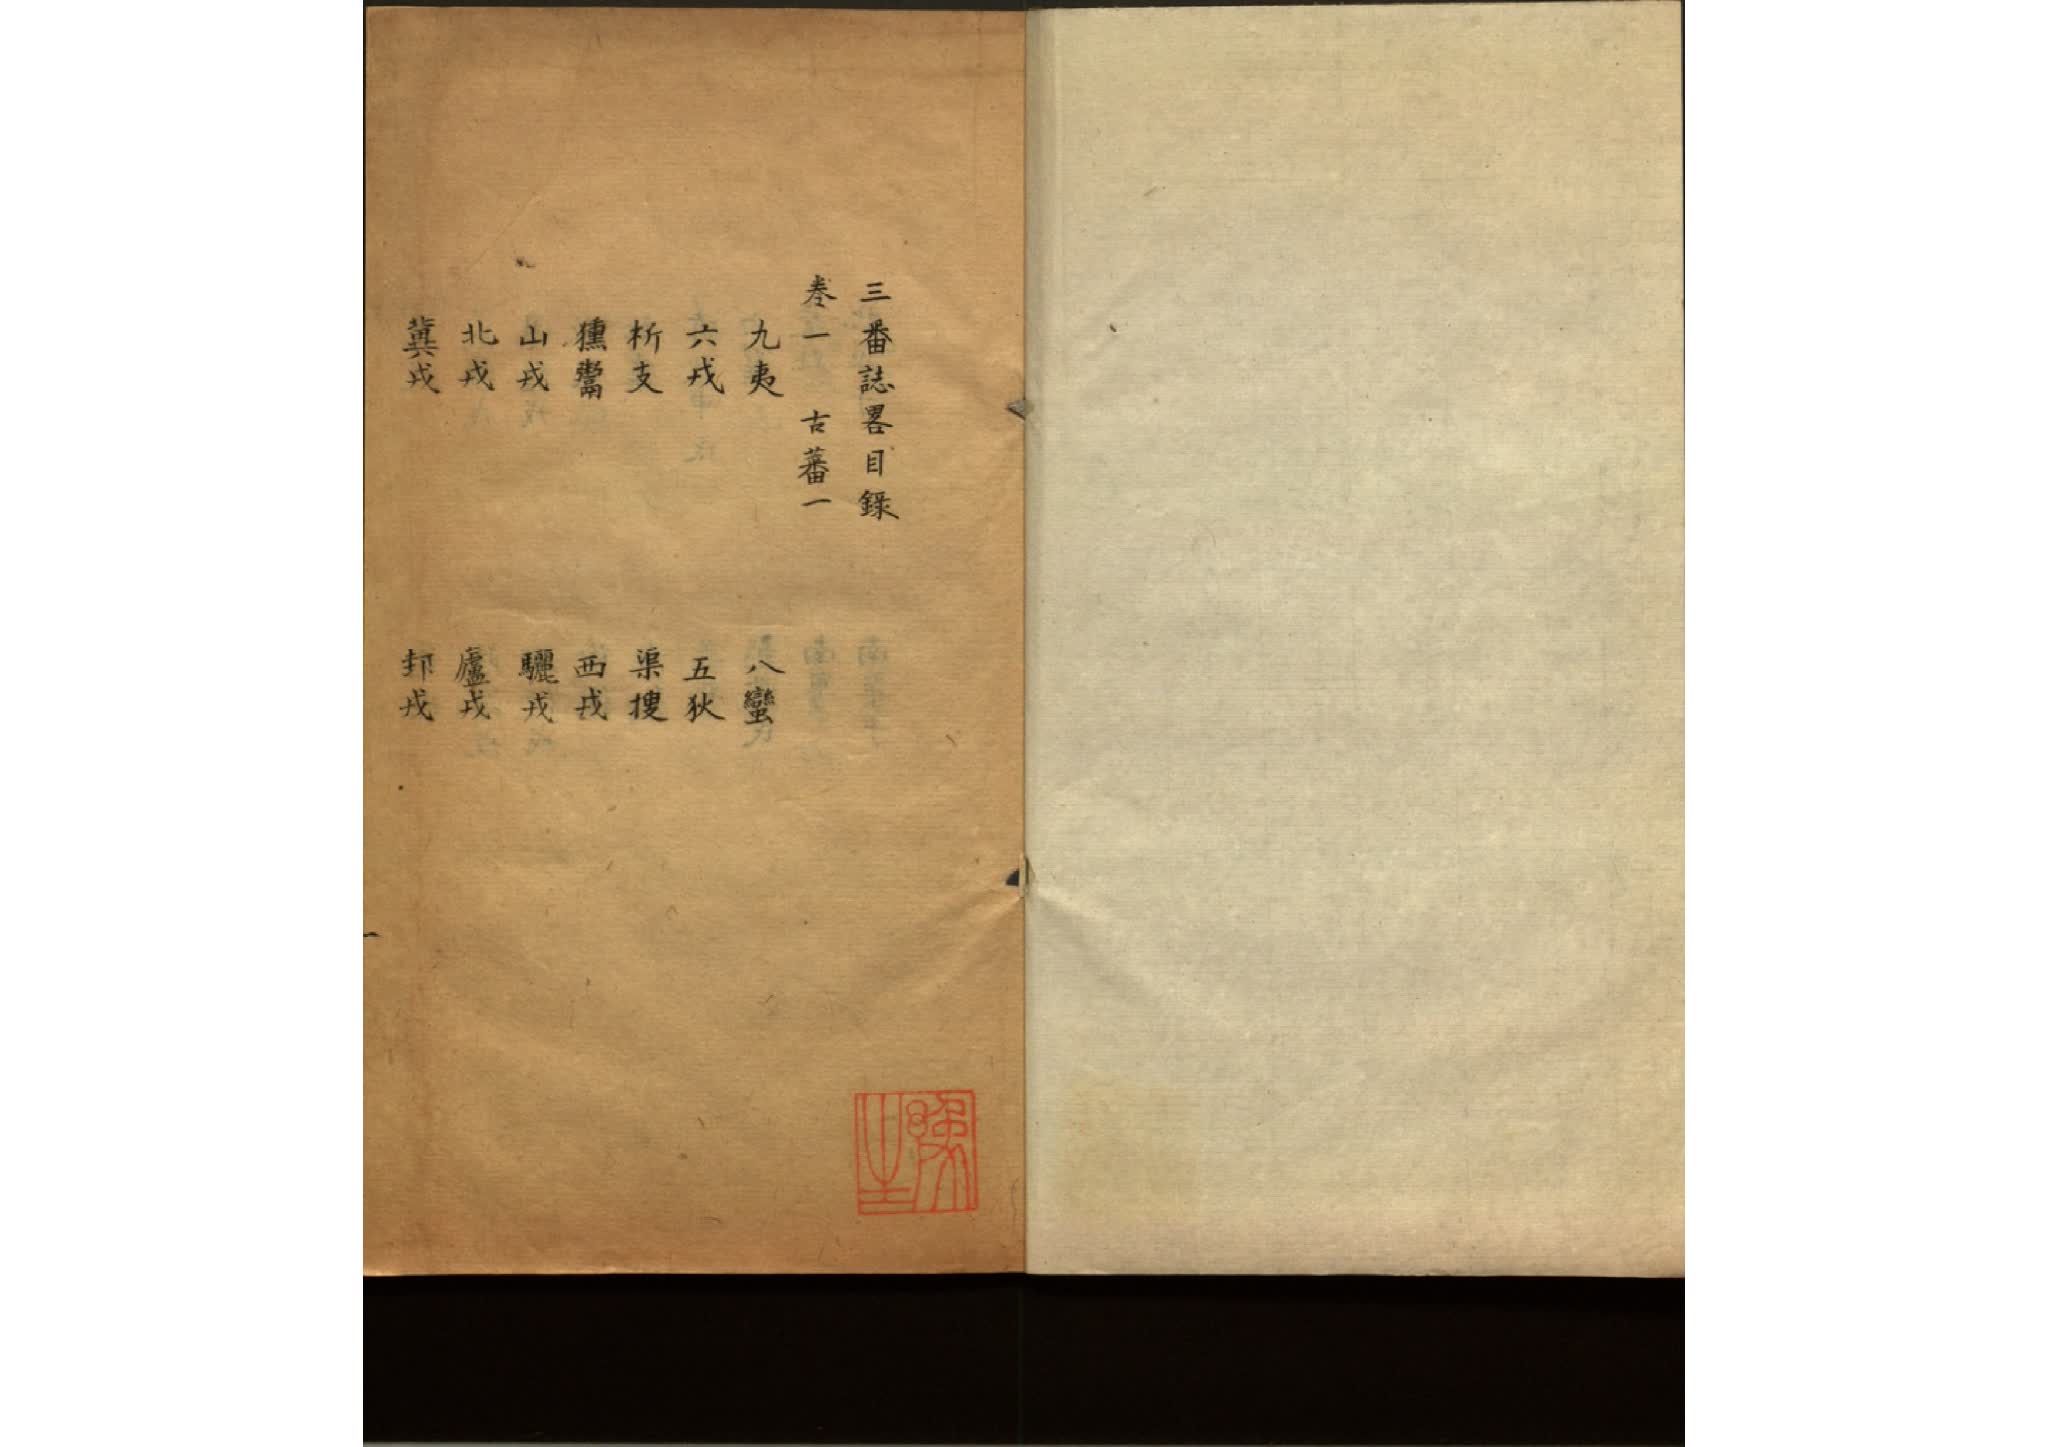 三番誌畧目錄
卷一　古蕃一
九夷　八蠻
六戎　五狄
析支　渠搜
獯鬻　西戎
山戎　驪戎
北戎　廬戎
冀戎　邽戎